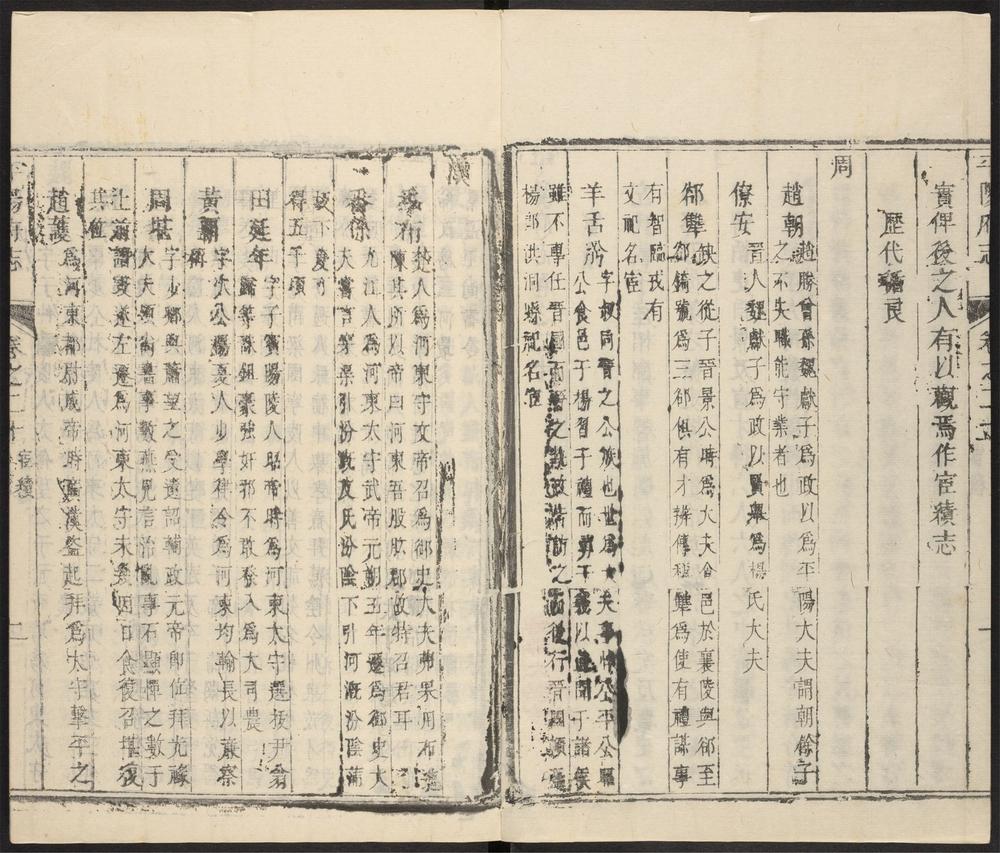 賓俾後之人有以觀焉作宦績志
歷代循良
周
趙朝 趙勝曾孫魏獻子為政以為平陽大夫謂朝餘子
之不失職能守業者也
僚安 晉人魏獻子為政以賢舉為楊氏大夫
郤犫 缺之從子晉景公時為大夫食邑於襄陵與郤至
郤錡號為三郤俱有才辨傳稱犫為使有禮謀事
有智臨戎有
文祀名宦
羊舌肸 字叔同晉之公族也世為大夫事悼公平公
公食邑于楊習于禮而以聞于諸侯
雖不專任晉國而晉之政
楊郡洪洞縣祀名宦
漢
季布 楚人為河東守文帝召為御史大夫弗果用布進
陳其所以帝曰河東吾股肱郡故特召君耳
番係 九江人為河東太守武帝元朔五年遷為御史大
夫嘗言穿渠引汾溉皮氏汾陰下引河溉汾陰蒲
坂下度可
得五千頃
田延年 字子賓陽陵人昭帝時為河東太守選拔尹翁
歸等誅鉏豪強奸邪不敢發入為大司農
黃霸 字次公陽夏人少學律令為河東均輸長以廉察
稱
周堪 字少卿與蕭望之受遺詔輔政元帝即位拜光祿
大夫領尚書事數燕見言治亂事石顯憚之數于
上前譖毀遂左遷為河東太守未幾因日食復召堪復
其位
趙護 為河東都尉成帝時廣漢盜起拜為太守擊平之
平陽府志
卷之二十
宦績
二